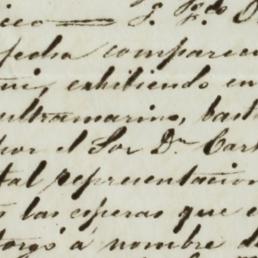 fecha comparec
exhibiendo en
ultramarino, bast
por el Sor Dn Car
tal representacion
las esperas que e
torgó á nombre de